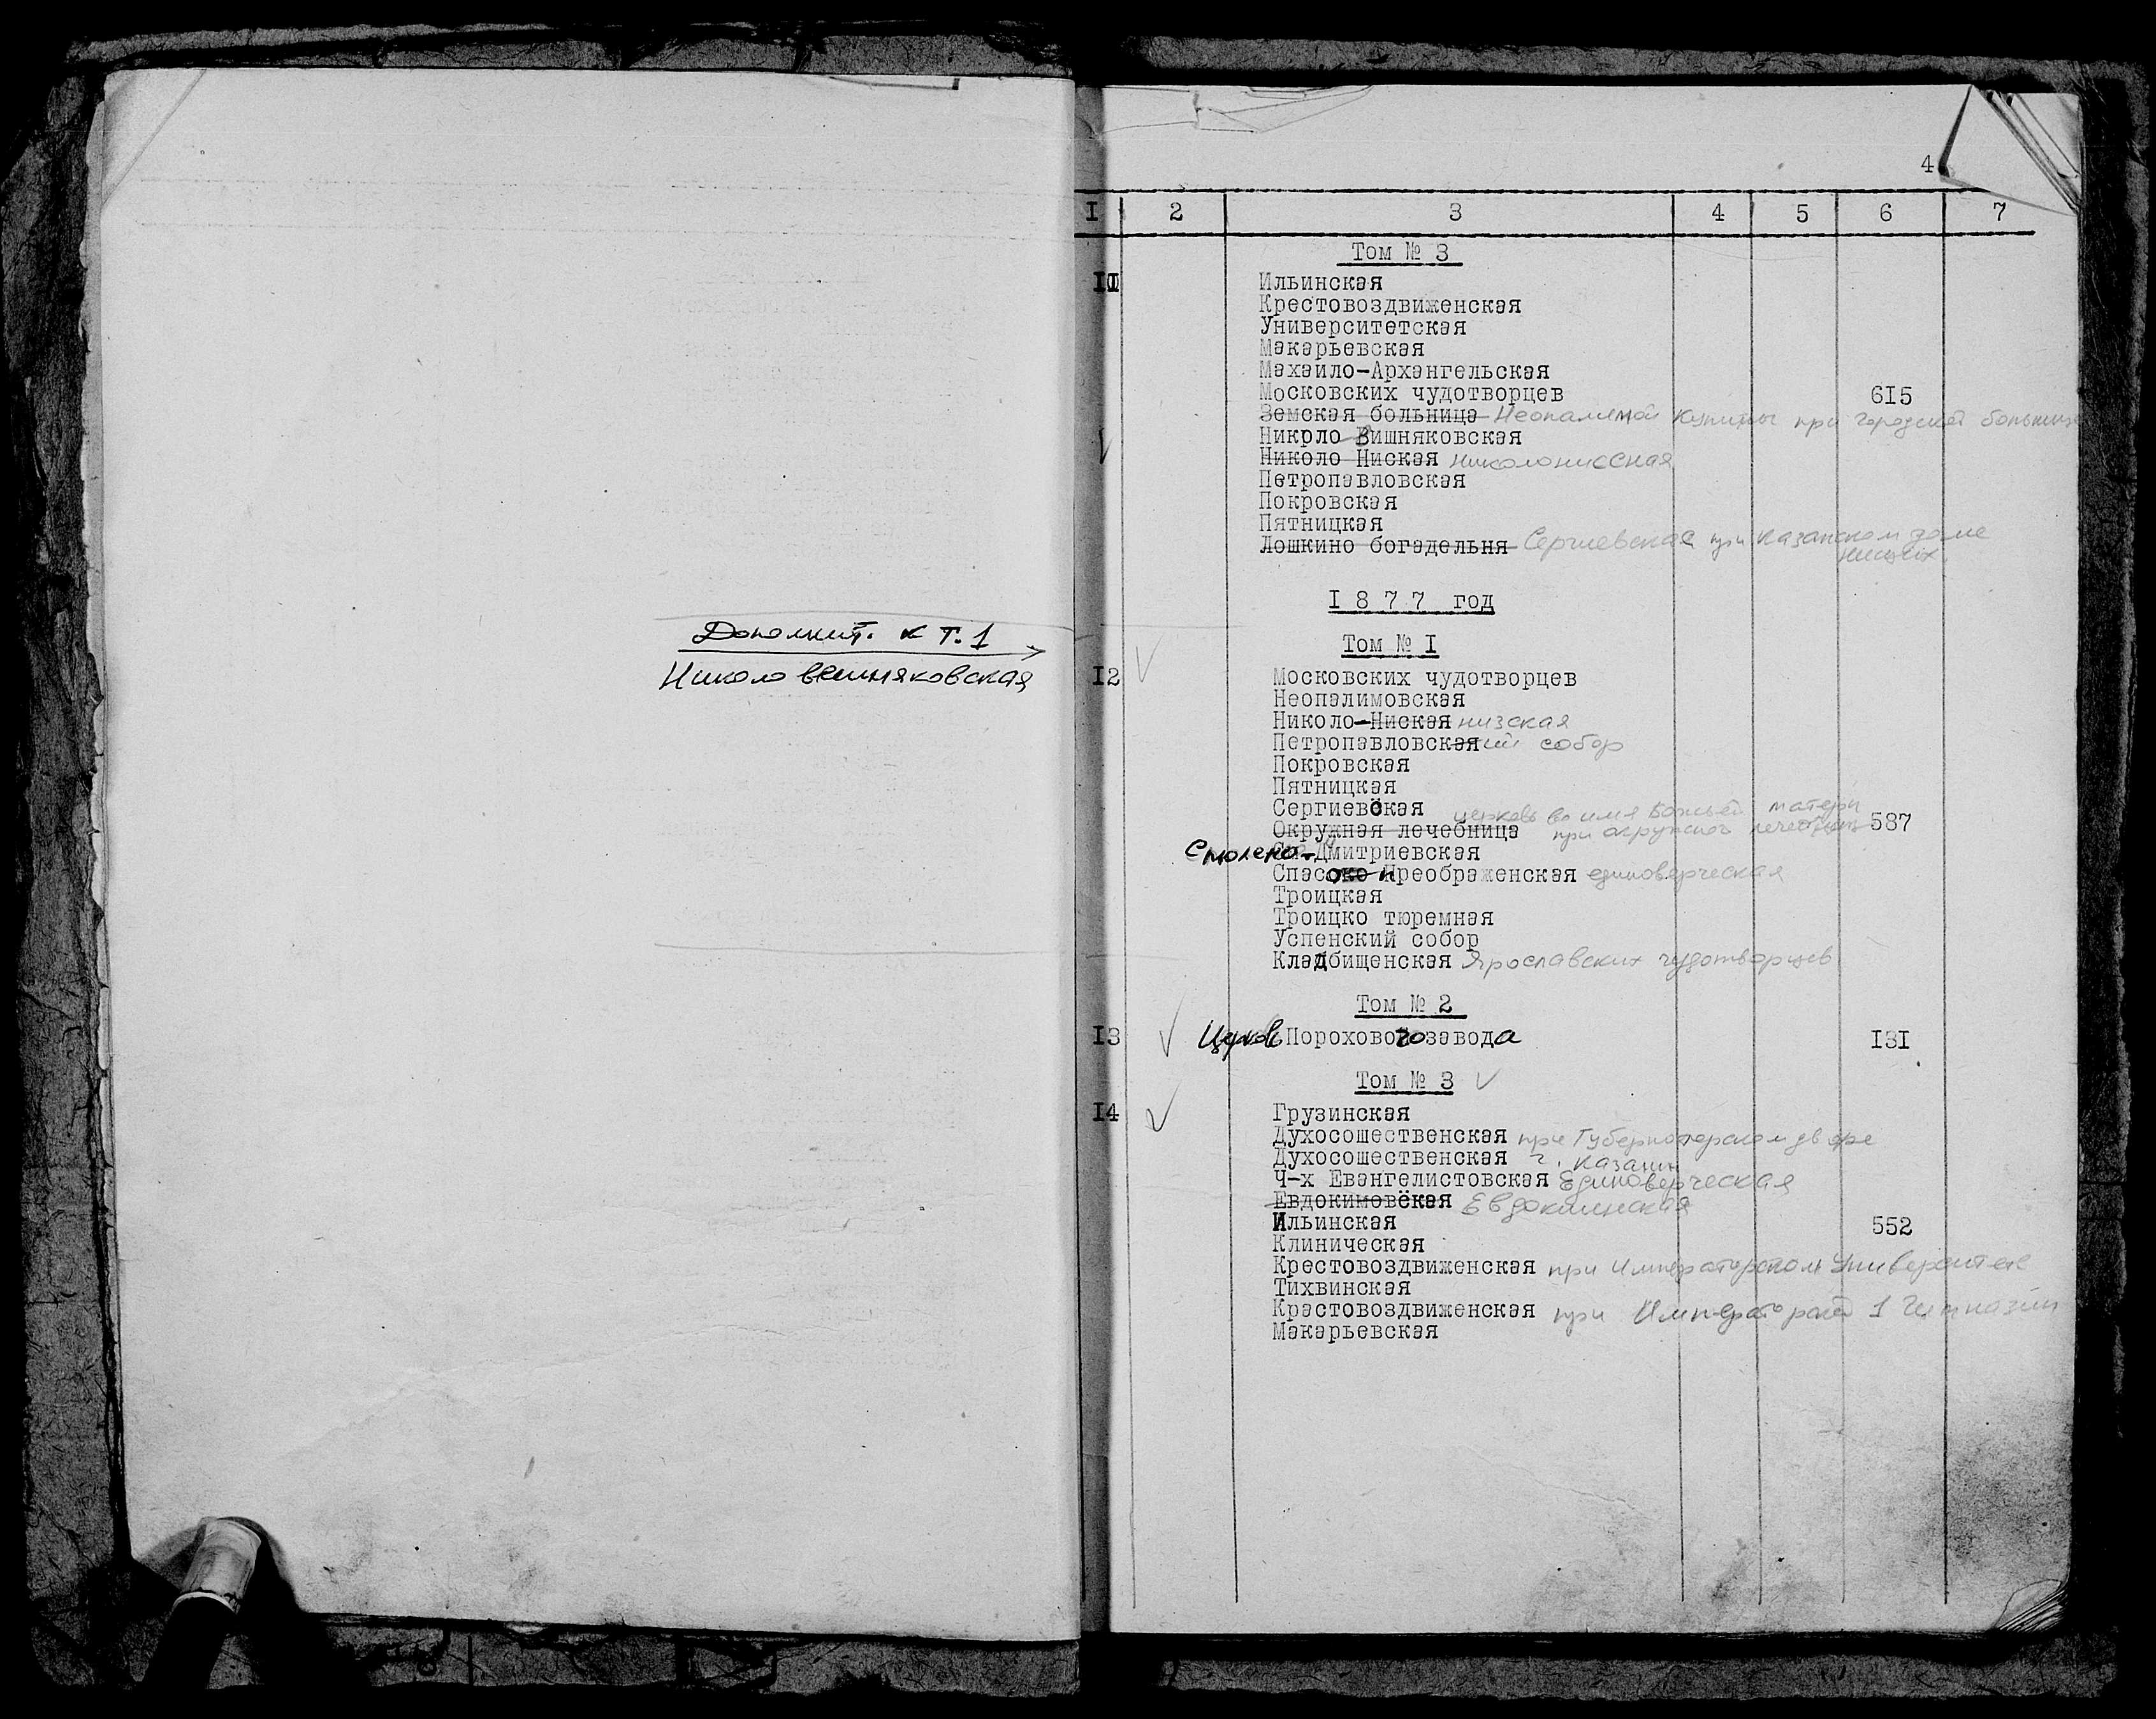 Дополнит. к т. 1
Николо вешняковская
4
I 2 3 4 5 6 7
Том № 3
II Ильинская
Крестовоздвиженская
Университетская
Макарьевская
Махаило-Архангельская
Московских чудотворцев 6I5
Земская больница Неопалимой Купины при городской больнице
Николо Вишняковская
Николо Ниская николонисская
Петропавловская
Покровская
Пятницкая
Лошкино богадельня Сергиевская при Казанском доме
нищих.
I 8 7 7 год
Том № I
I2 Московских чудотворцев
Неопалимовская
Николо-Ниская низская
Петропавловская ий собор
Покровская
Пятницкая
Сергиевская церковь во имя Божьей матери
Окружная лечебница при окружной лечебнице 587
Смолено-Дмитриевская
Спасско Преображенская единоверческая
Троицкая
Троицко тюремная
Успенский собор
Кладбищенская Ярославских чудотворцев
Том № 2
I3 Церковь Порохового завода I3I
Том № 3
I4 Грузинская
Духосошественская при Губернаторском дворе
Духосошественская г. Казани
Ч-х Евангелистовская Единоверческая
Евдокимовская Евдокиинская
Ильинская 552
Клиническая
Крестовоздвиженская при Императорском Университете
Тихвинская
Крастовоздвиженская при Императорской 1 Гимназии
Макарьевская